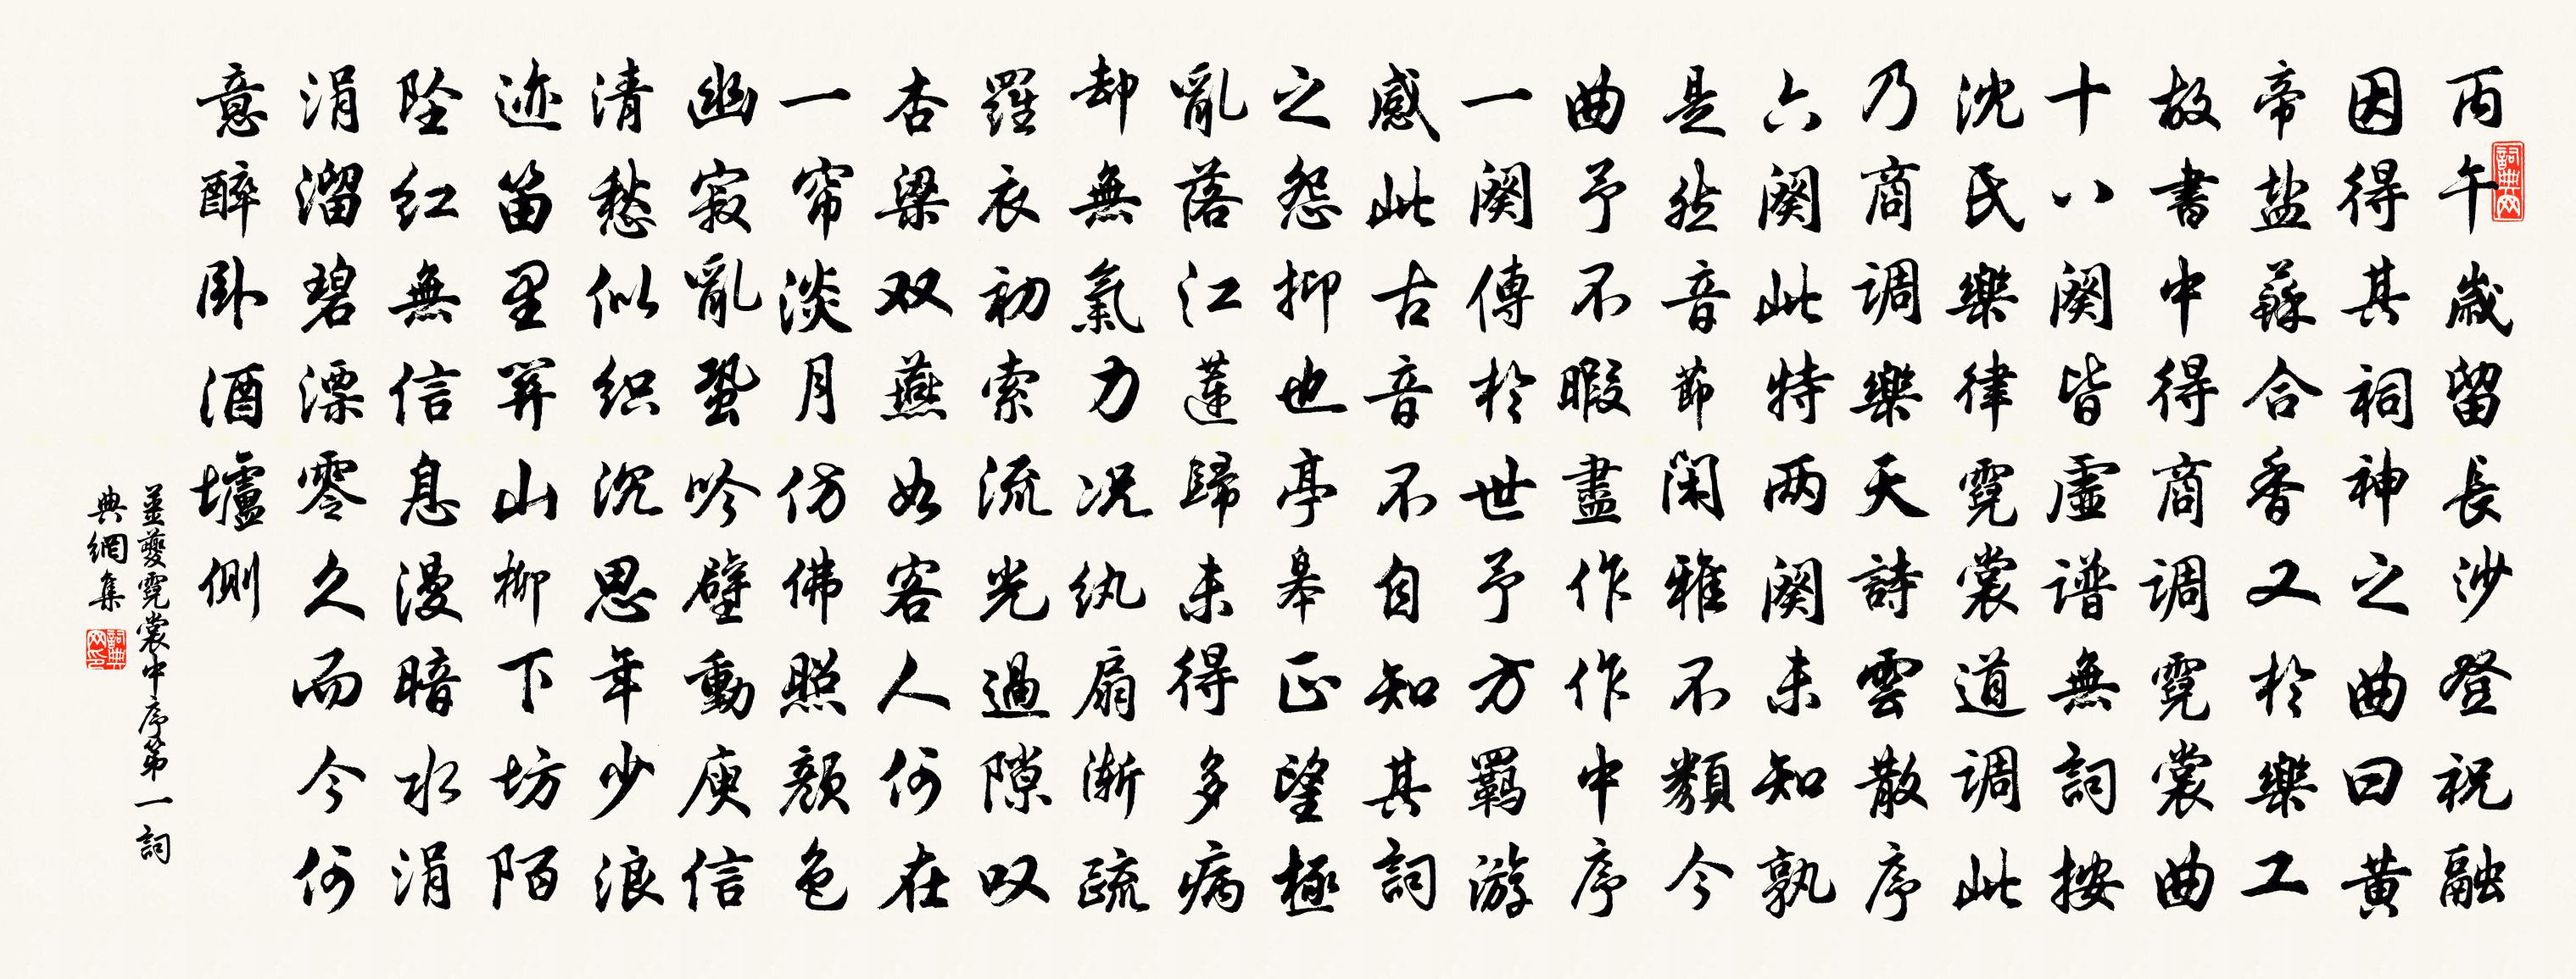 丙午歲留長沙登祝融
因得其祠神之曲曰黄
帝盐蘇合香又於樂工
故書中得商调霓裳曲
十八阕皆虚谱無詞按
沈氏樂律霓裳道调此
乃商调樂天詩雲散序
六阕此特两阕未知孰
是然音节闲雅不類今
曲予不暇盡作作中序
一阕傳於世予方羁游
感此古音不自知其詞
之怨抑也亭皋正望極
亂落江蓮歸未得多病
却無氣力况纨扇渐疏
羅衣初索流光過隙叹
杏梁双燕如客人何在
一帘淡月仿佛照颜色
幽寂亂蛩吟壁動庾信
清愁似织沉思年少浪
迹笛里關山柳下坊陌
坠红無信息漫暗水涓
涓溜碧漂零久而今何
意醉卧酒壚侧
姜夔霓裳中序第一詞
典網集
詞典网
詞典网印